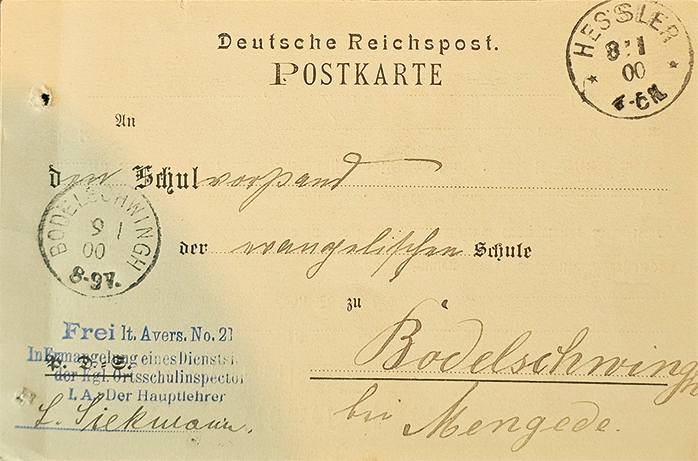 Deutsche Reichspost.
POSTKARTE
HESSLER
8 1
00
An
den Schulvorstand
BODELSCHWINGH
9 1
00
8-9V.
der evangelischen Schule
zu
Bodelschwingh
bei Mengede.
Frei lt. Avers. No. 21
In Ermangelung eines Dienstsi
der Kgl. Ortsschulinspector
I. A.: Der Hauptlehrer
L. Siekmann.